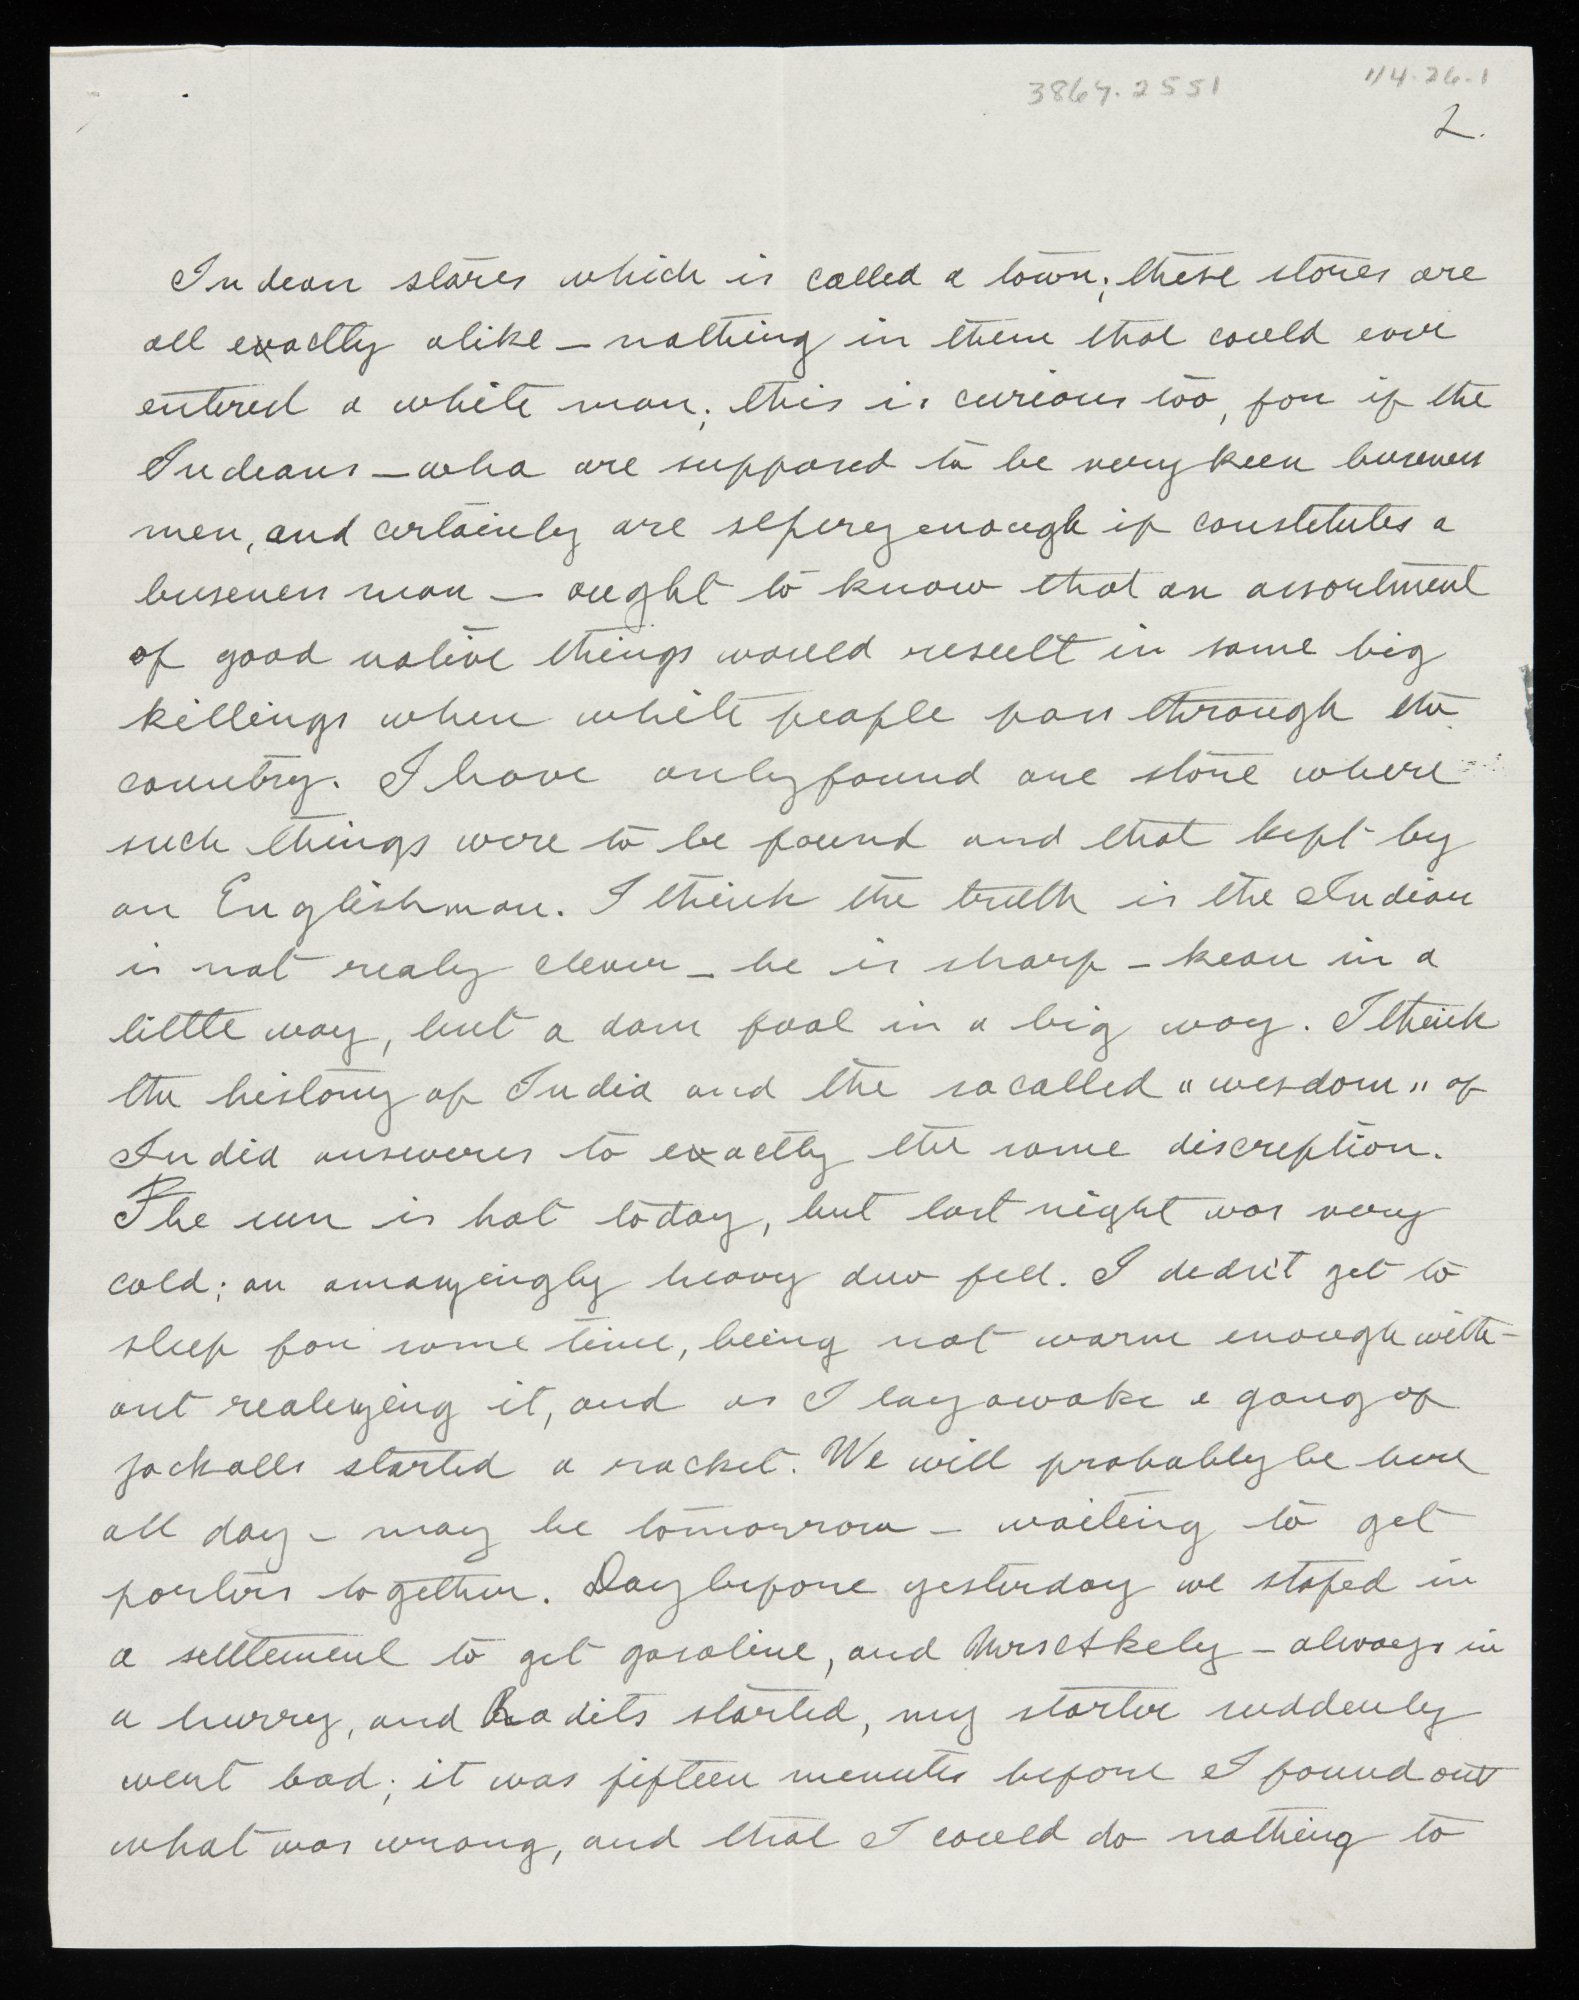 3867.2551
114.26.1
2.
Indean stores which is called a town; these stores are
all exactly alike – nothing in them that could ever
entered a white man; this is curious too, for if the
Indeans – who are supposed to be very keen buseness
men, and certainly are slipery enough if constetutes a
buseness man – ought to know that an assortment
of good native things would result in some big
killings when white people pass through the
country. I have only found one store where
such things were to be found and that kept by
an Englishman. I think the truth is the Indian
is not realy clever – he is sharp – kean in a
little way, but a dam fool in a big way. I think
the history of India and the so called "wesdom" of
India answeres to exactly the same discreption.
The sun is hot today, but last night was very
cold; an amazeingly heavy dew fell. I dedn't get to
sleep for some time, being not warm enough with-
out realezeing it, and as I lay awake a gang of
jackalls started a racket. We will probably be here
all day – may be tomorrow – waiting to get
porters together. Day before yesterday we stoped in
a settlement to get gasoline, and Mrs Akely – always in
a hurry, and Radits started, my starter suddenly
went bad; it was fifteen menutes before I found out
what was wrong, and that I could do nothing to